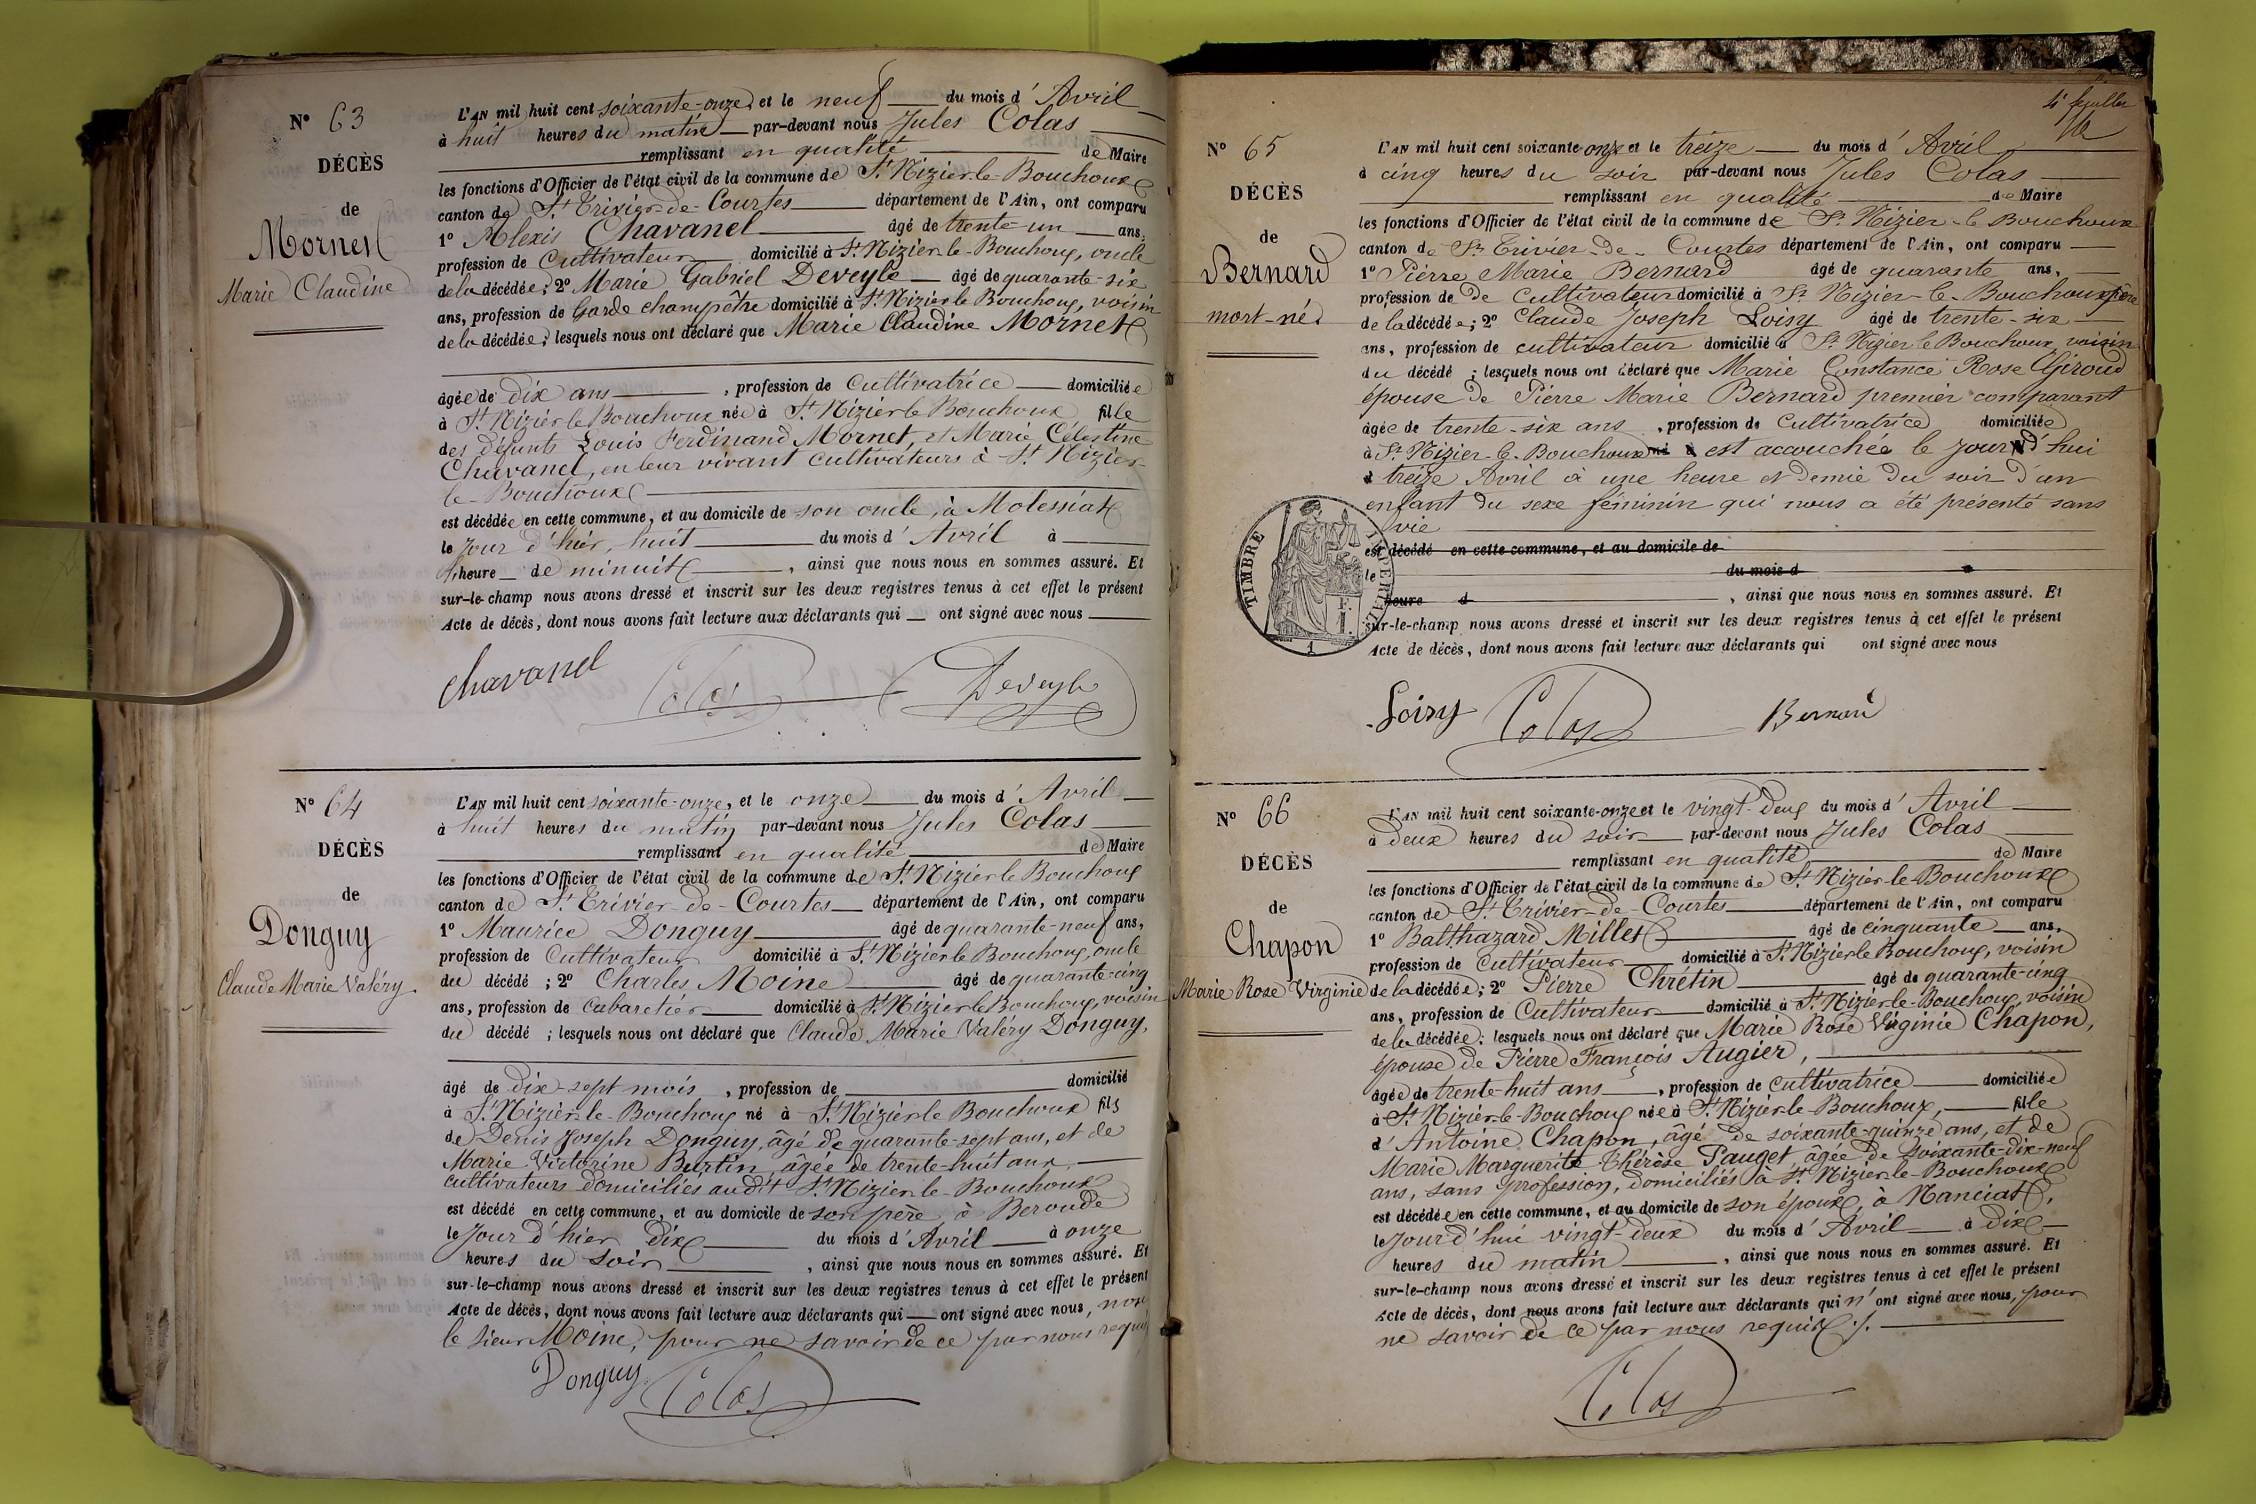 N° 63
DÉCÈS
de
Mornet
Marie Claudine
L'AN mil huit cent soixante-onze, et le neuf du mois d'Avril
à huit heures du matin par-devant nous Jules Colas
remplissant en qualité de Maire
les fonctions d'Officier de l'état civil de la commune de St Nizier-le-Bouchoux
canton de St Trivier-de-Courtes département de l'Ain, ont comparu
1° Alexis Chavanel âgé de trente-un ans,
profession de Cultivateur domicilié à St Nizier-le-Bouchoux, oncle
de la décédée; 2° Marie Gabriel Deveyle âgé de quarante-six
ans, profession de Garde champêtre domicilié à St Nizier le Bouchoux, voisin
de la décédée; lesquels nous ont déclaré que Marie Claudine Mornet
âgée de dix ans, profession de Cultivatrice domiciliée
à St Nizier le Bouchoux née à St Nizier le Bouchoux fille
des défunts Louis Ferdinand Mornet, et Marie Célestine
Chavanel, en leur vivant cultivateurs à St Nizier-
le-Bouchoux
est décédée en cette commune, et au domicile de son oncle, à Molessiat
le jour d'hier, huit du mois d'Avril à
heure de minuit, ainsi que nous nous en sommes assuré. Et
sur-le-champ nous avons dressé et inscrit sur les deux registres tenus à cet effet le présent
Acte de décès, dont nous avons fait lecture aux déclarants qui ont signé avec nous
Chavanel Colas Deveyle
N° 64
DÉCÈS
de
Donguy
Claude Marie Valéry.
L'AN mil huit cent soixante-onze, et le onze du mois d'Avril
à huit heures du matin par-devant nous Jules Colas
remplissant en qualité de Maire
les fonctions d'Officier de l'état civil de la commune de St Nizier le Bouchoux
canton de St Trivier-de-Courtes département de l'Ain, ont comparu
1° Maurice Donguy âgé de quarante-neuf ans,
profession de Cultivateur domicilié à St Nizier le Bouchoux, oncle
du décédé; 2° Charles Moine âgé de quarante-cinq
ans, profession de Cabaretier domicilié à St Nizier le Bouchoux, voisin
du décédé; lesquels nous ont déclaré que Claude Marie Valéry Donguy,
âgé de dix-sept mois, profession de domicilié
à St Nizier-le-Bouchoux né à St Nizier le Bouchoux fils
de Denis Joseph Donguy, âgé de quarante-sept ans, et de
Marie Victorine Burtin, âgée de trente-huit ans,
cultivateurs domiciliés audit St Nizier-le-Bouchoux
est décédé en cette commune, et au domicile de son père, à Beroude
le jour d'hier dix du mois d'Avril à onze
heures du soir, ainsi que nous nous en sommes assuré. Et
sur-le-champ nous avons dressé et inscrit sur les deux registres tenus à cet effet le présent
Acte de décès, dont nous avons fait lecture aux déclarants qui ont signé avec nous, non
le sieur Moine, pour ne savoir de ce par nous requis
Donguy Colas
N° 65
DÉCÈS
de
Bernard
mort-né.
L'AN mil huit cent soixante-onze et le treize du mois d'Avril
à cinq heures du soir par-devant nous Jules Colas
remplissant en qualité de Maire
les fonctions d'Officier de l'état civil de la commune de St Nizier-le-Bouchoux
canton de St Trivier-de-Courtes département de l'Ain, ont comparu
1° Pierre Marie Bernard âgé de quarante ans,
profession de de Cultivateur domicilié à St Nizier-le-Bouchoux père
de la décédée; 2° Claude Joseph Loisy âgé de trente-six
ans, profession de cultivateur domicilié à St Nizier le Bouchoux, voisin
du décédé; lesquels nous ont déclaré que Marie Constance Rose Giroud
épouse de Pierre Marie Bernard premier comparant
âgée de trente-six ans, profession de Cultivatrice domiciliée
à St Nizier-le-Bouchoux né à est accouchée le jour d'hui
treize Avril à une heure et demie du soir d'un
enfant du sexe féminin qui nous a été présenté sans
vie
est décédé en cette commune, et au domicile de
le du mois d à
heure d, ainsi que nous nous en sommes assuré. Et
sur-le-champ nous avons dressé et inscrit sur les deux registres tenus à cet effet le présent
Acte de décès, dont nous avons fait lecture aux déclarants qui ont signé avec nous
TIMBRE IMPERIAL
1
Loisy Colas Bernard
N° 66
DÉCÈS
de
Chapon
Marie Rose Virginie
L'AN mil huit cent soixante-onze et le vingt-deux du mois d'Avril
à deux heures du soir par-devant nous Jules Colas
remplissant en qualité de Maire
les fonctions d'Officier de l'état civil de la commune de St Nizier-le-Bouchoux
canton de St Trivier-de-Courtes département de l'Ain, ont comparu
1° Balthazard Millet âgé de cinquante ans,
profession de Cultivateur domicilié à St Nizier le Bouchoux, voisin
de la décédée; 2° Pierre Chrétin âgé de quarante-cinq
ans, profession de Cultivateur domicilié à St Nizier-le-Bouchoux, voisin
de la décédée; lesquels nous ont déclaré que Marie Rose Virginie Chapon,
épouse de Pierre François Augier,
âgée de trente-huit ans, profession de Cultivatrice domiciliée
à St Nizier-le-Bouchoux née à St Nizier-le-Bouchoux, fille
d'Antoine Chapon, âgé de soixante-quinze ans, et de
Marie Marguerite Thérèse Pauget âgée de soixante-dix-neuf
ans, sans profession, domiciliés à St Nizier-le-Bouchoux
est décédée en cette commune, et au domicile de son époux, à Manciat,
le jour d'hui vingt-deux du mois d'Avril à dix
heures du matin, ainsi que nous nous en sommes assuré. Et
sur-le-champ nous avons dressé et inscrit sur les deux registres tenus à cet effet le présent
Acte de décès, dont nous avons fait lecture aux déclarants qui n'ont signé avec nous, pour
ne savoir de ce par nous requis ./.
Colas